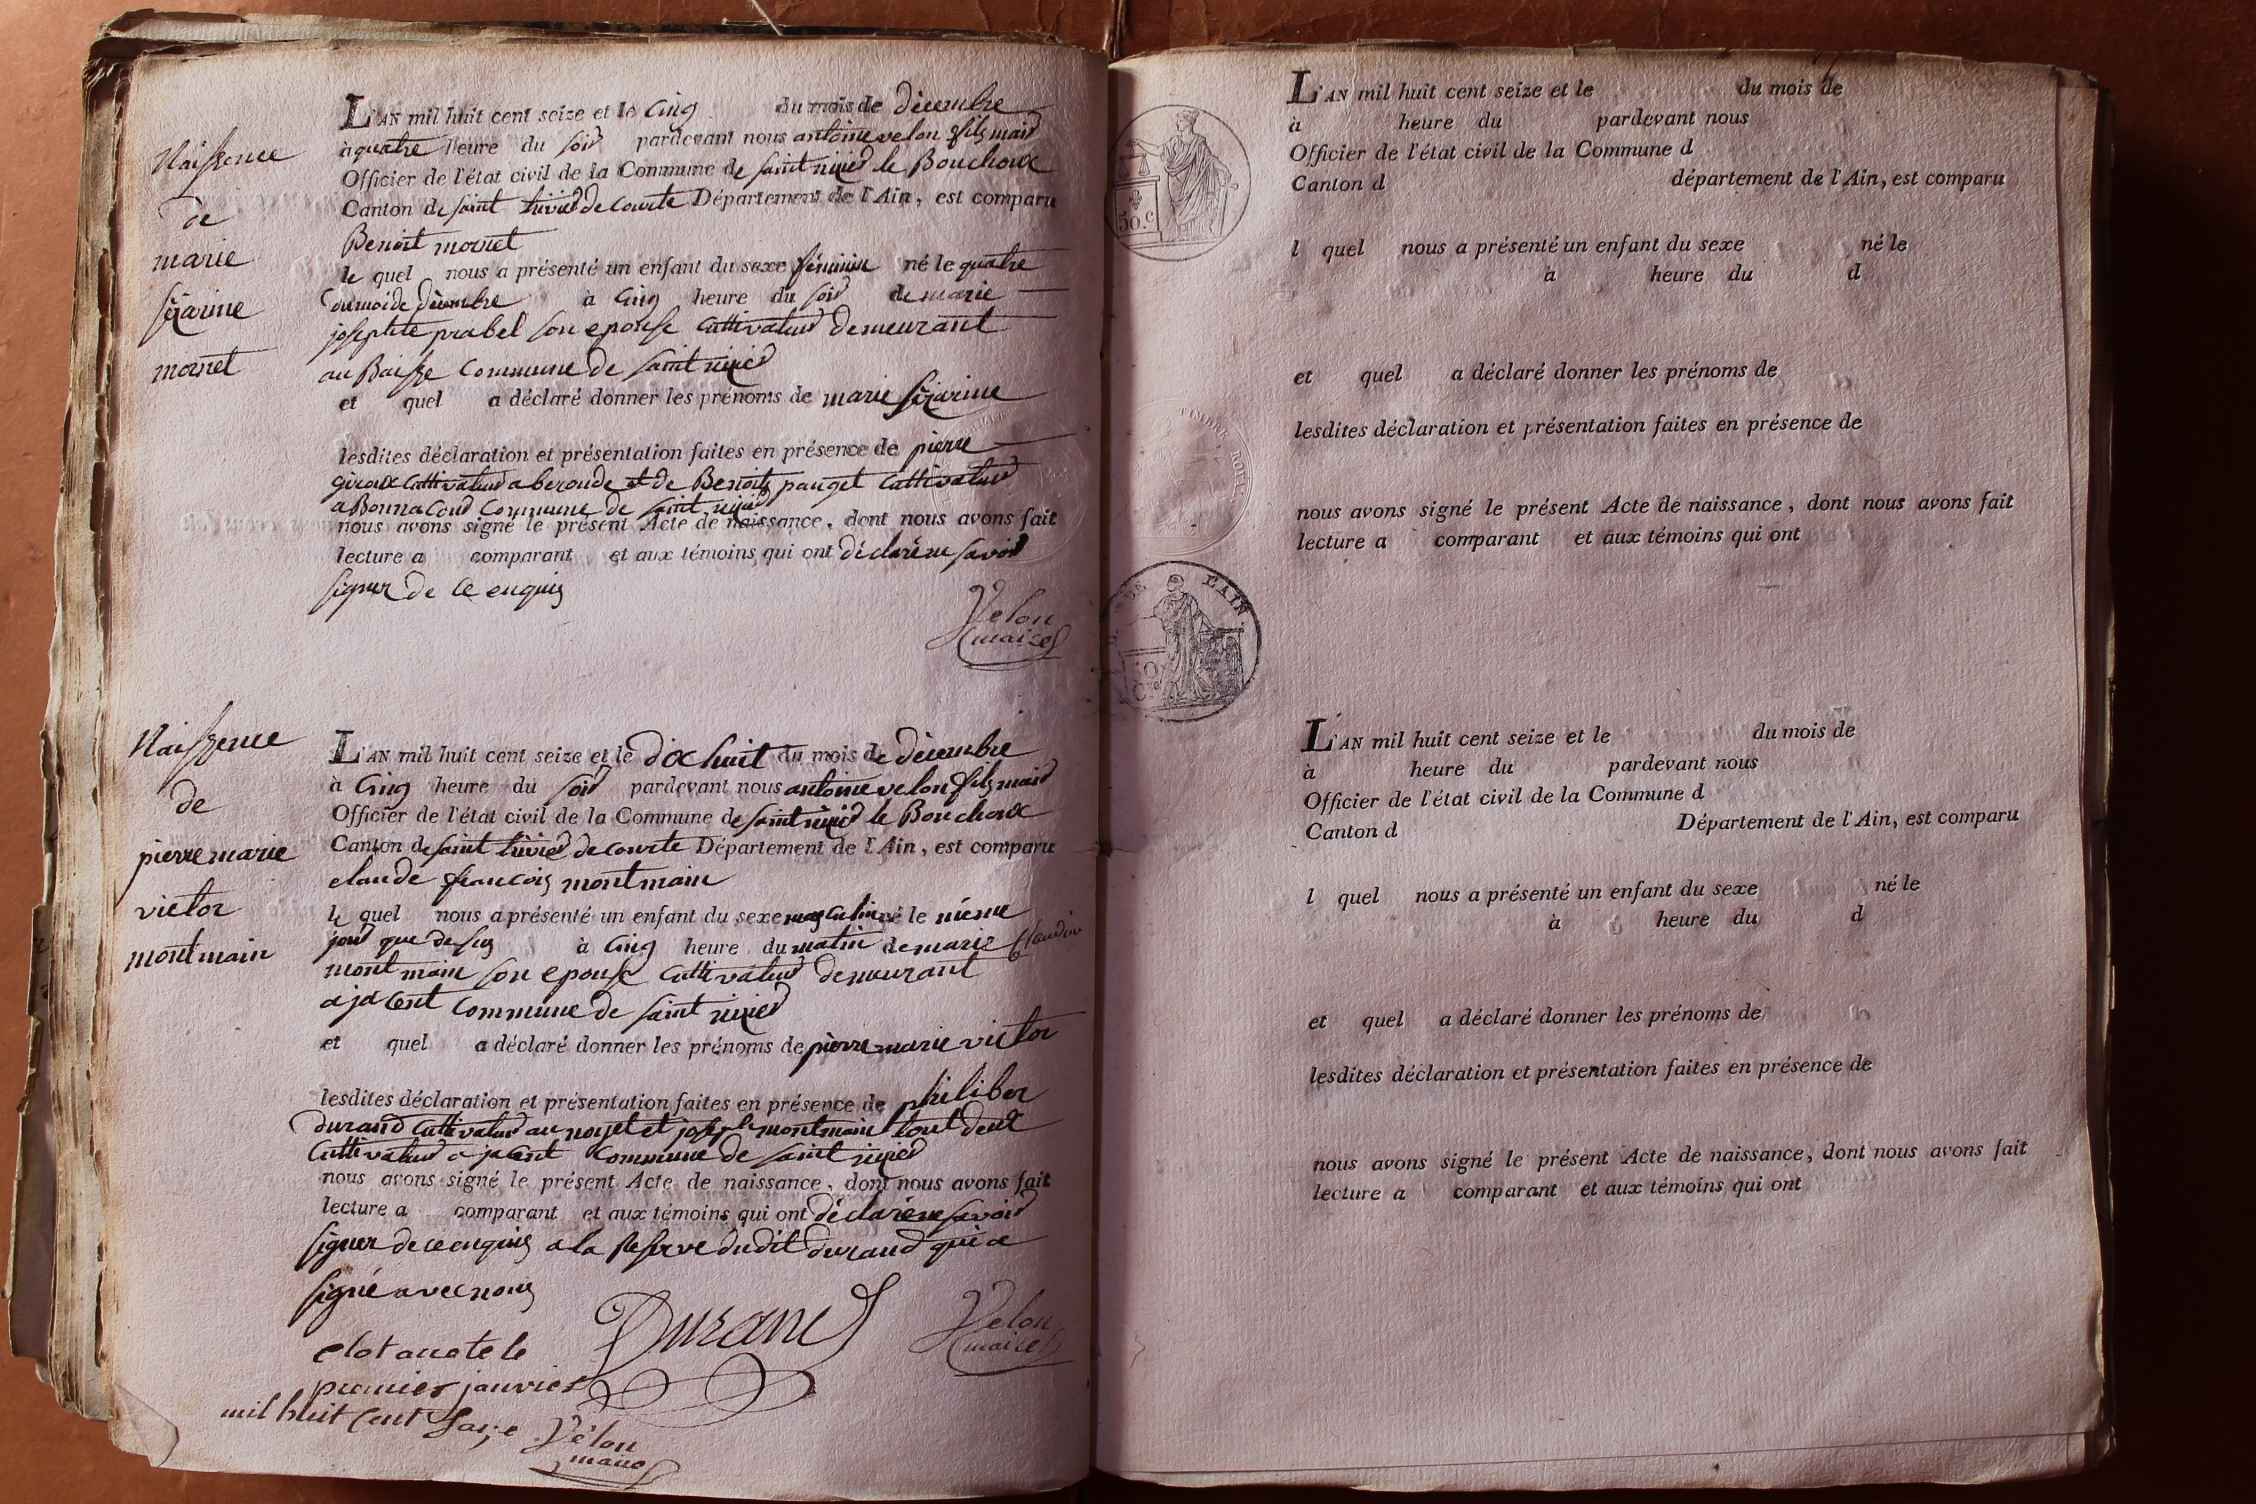 Naissence
de
marie
sézarine
mornet
L'AN mil huit cent seize et le Cinq du mois de décembre
à quatre heure du soir pardevant nous antoine velon fils maire
Officier de l'état civil de la Commune de saint nizier le Bouchoux
Canton de saint trivier de courte Département de l'Ain, est comparu
Benoit mornet
le quel nous a présenté un enfant du sexe féminin né le quatre
du moi de décembre à Cinq heure du soir de marie
josephte prabel son epouse Cultivateur demeurant
au Baisse commune de saint nizier
et quel a déclaré donner les prénoms de marie sézarine
lesdites déclaration et présentation faites en présence de pierre
giroux Cultivateur a beroude et de Benoits pauget Cultivateur
a Bonnacour Commune de saint nizier
nous avons signé le présent Acte de naissance, dont nous avons fait
lecture a comparant et aux témoins qui ont déclaré ne savoir
signer de ce enquis
Velon
maire
Naissence
de
pierre marie
victor
montmain
L'AN mil huit cent seize et le dix huit du mois de décembre
à Cinq heure du soir pardevant nous antoine velon fils maire
Officier de l'état civil de la Commune de saint nizier le Bouchoux
Canton de saint trivier de courte Département de l'Ain, est comparu
claude francois montmain
le quel nous a présenté un enfant du sexe masculin né le même
jour que desus à Cinq heure du matin de marie Claudine
montmain son epouse Cultivateur demeurant
a jacent commune de saint nizier
et quel a déclaré donner les prénoms de pierre marie victor
lesdites déclaration et présentation faites en présence de philiber
durand Cultivateur au noyet et joseph montmain tout deux
Cultivateur a jacent Commune de saint nizier
nous avons signé le présent Acte de naissance, dont nous avons fait
lecture a comparant et aux témoins qui ont déclaré ne savoir
signer de ce enquis a la Reserve dudit durand qui a
signé avec nous
Durand
Velon
maire
clot arrete le
premier janvier
mil huit cent
Velon
maire
50.c
TIMBRE ROYAL
DE L'AIN
L'AN mil huit cent seize et le du mois de
à heure du pardevant nous
Officier de l'état civil de la Commune d
Canton d département de l'Ain, est comparu
l quel nous a présenté un enfant du sexe né le
à heure du d
et quel a déclaré donner les prénoms de
lesdites déclaration et présentation faites en présence de
nous avons signé le présent Acte de naissance, dont nous avons fait
lecture a comparant et aux témoins qui ont
L'AN mil huit cent seize et le du mois de
à heure du pardevant nous
Officier de l'état civil de la Commune d
Canton d Département de l'Ain, est comparu
l quel nous a présenté un enfant du sexe né le
à heure du d
et quel a déclaré donner les prénoms de
lesdites déclaration et présentation faites en présence de
nous avons signé le présent Acte de naissance, dont nous avons fait
lecture a comparant et aux témoins qui ont